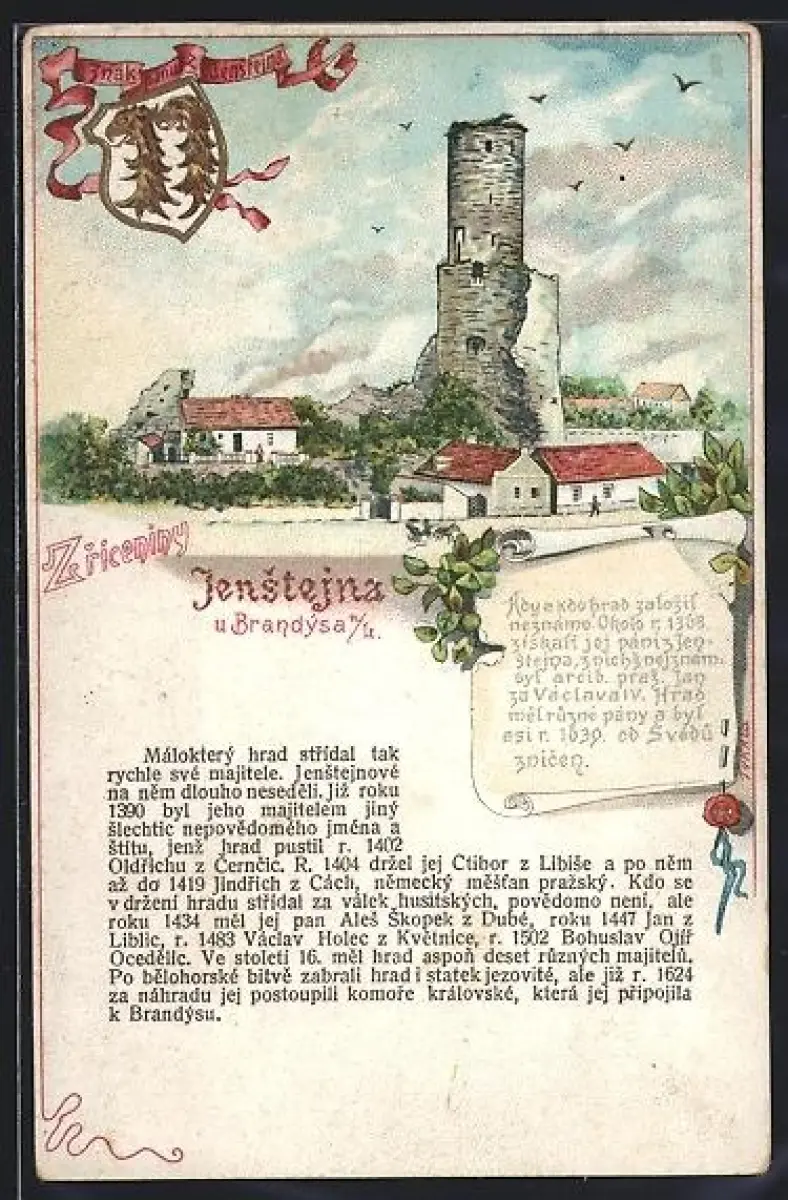 Znak pánů z Jenštejna
Zříceniny
Jenštejna
u Brandýsa n/L.
Kdy a kdo hrad založil
neznámo. Okolo r. 1368
získali jej páni z Jen-
štejna, z nichž nejznám.
byl arcib. praž. Jan
za Václava IV. Hrad
měl různé pány a byl
asi r. 1639. od Švédů
zničen.
Málokterý hrad střídal tak
rychle své majitele. Jenštejnové
na něm dlouho neseděli. Již roku
1390 byl jeho majitelem jiný
šlechtic nepovědomého jména a
štítu, jenž hrad pustil r. 1402
Oldřichu z Černčic. R. 1404 držel jej Ctibor z Libiše a po něm
až do 1419 Jindřich z Cách, německý měšťan pražský. Kdo se
v držení hradu střídal za válek husitských, povědomo není, ale
roku 1434 měl jej pan Aleš Škopek z Dubé, roku 1447 Jan z
Liblic, r. 1483 Václav Holec z Květnice, r. 1502 Bohuslav Ojíř
Ocedělic. Ve století 16. měl hrad aspoň deset různých majitelů.
Po bělohorské bitvě zabrali hrad i statek jezovité, ale již r. 1624
za náhradu jej postoupili komoře královské, která jej připojila
k Brandýsu.